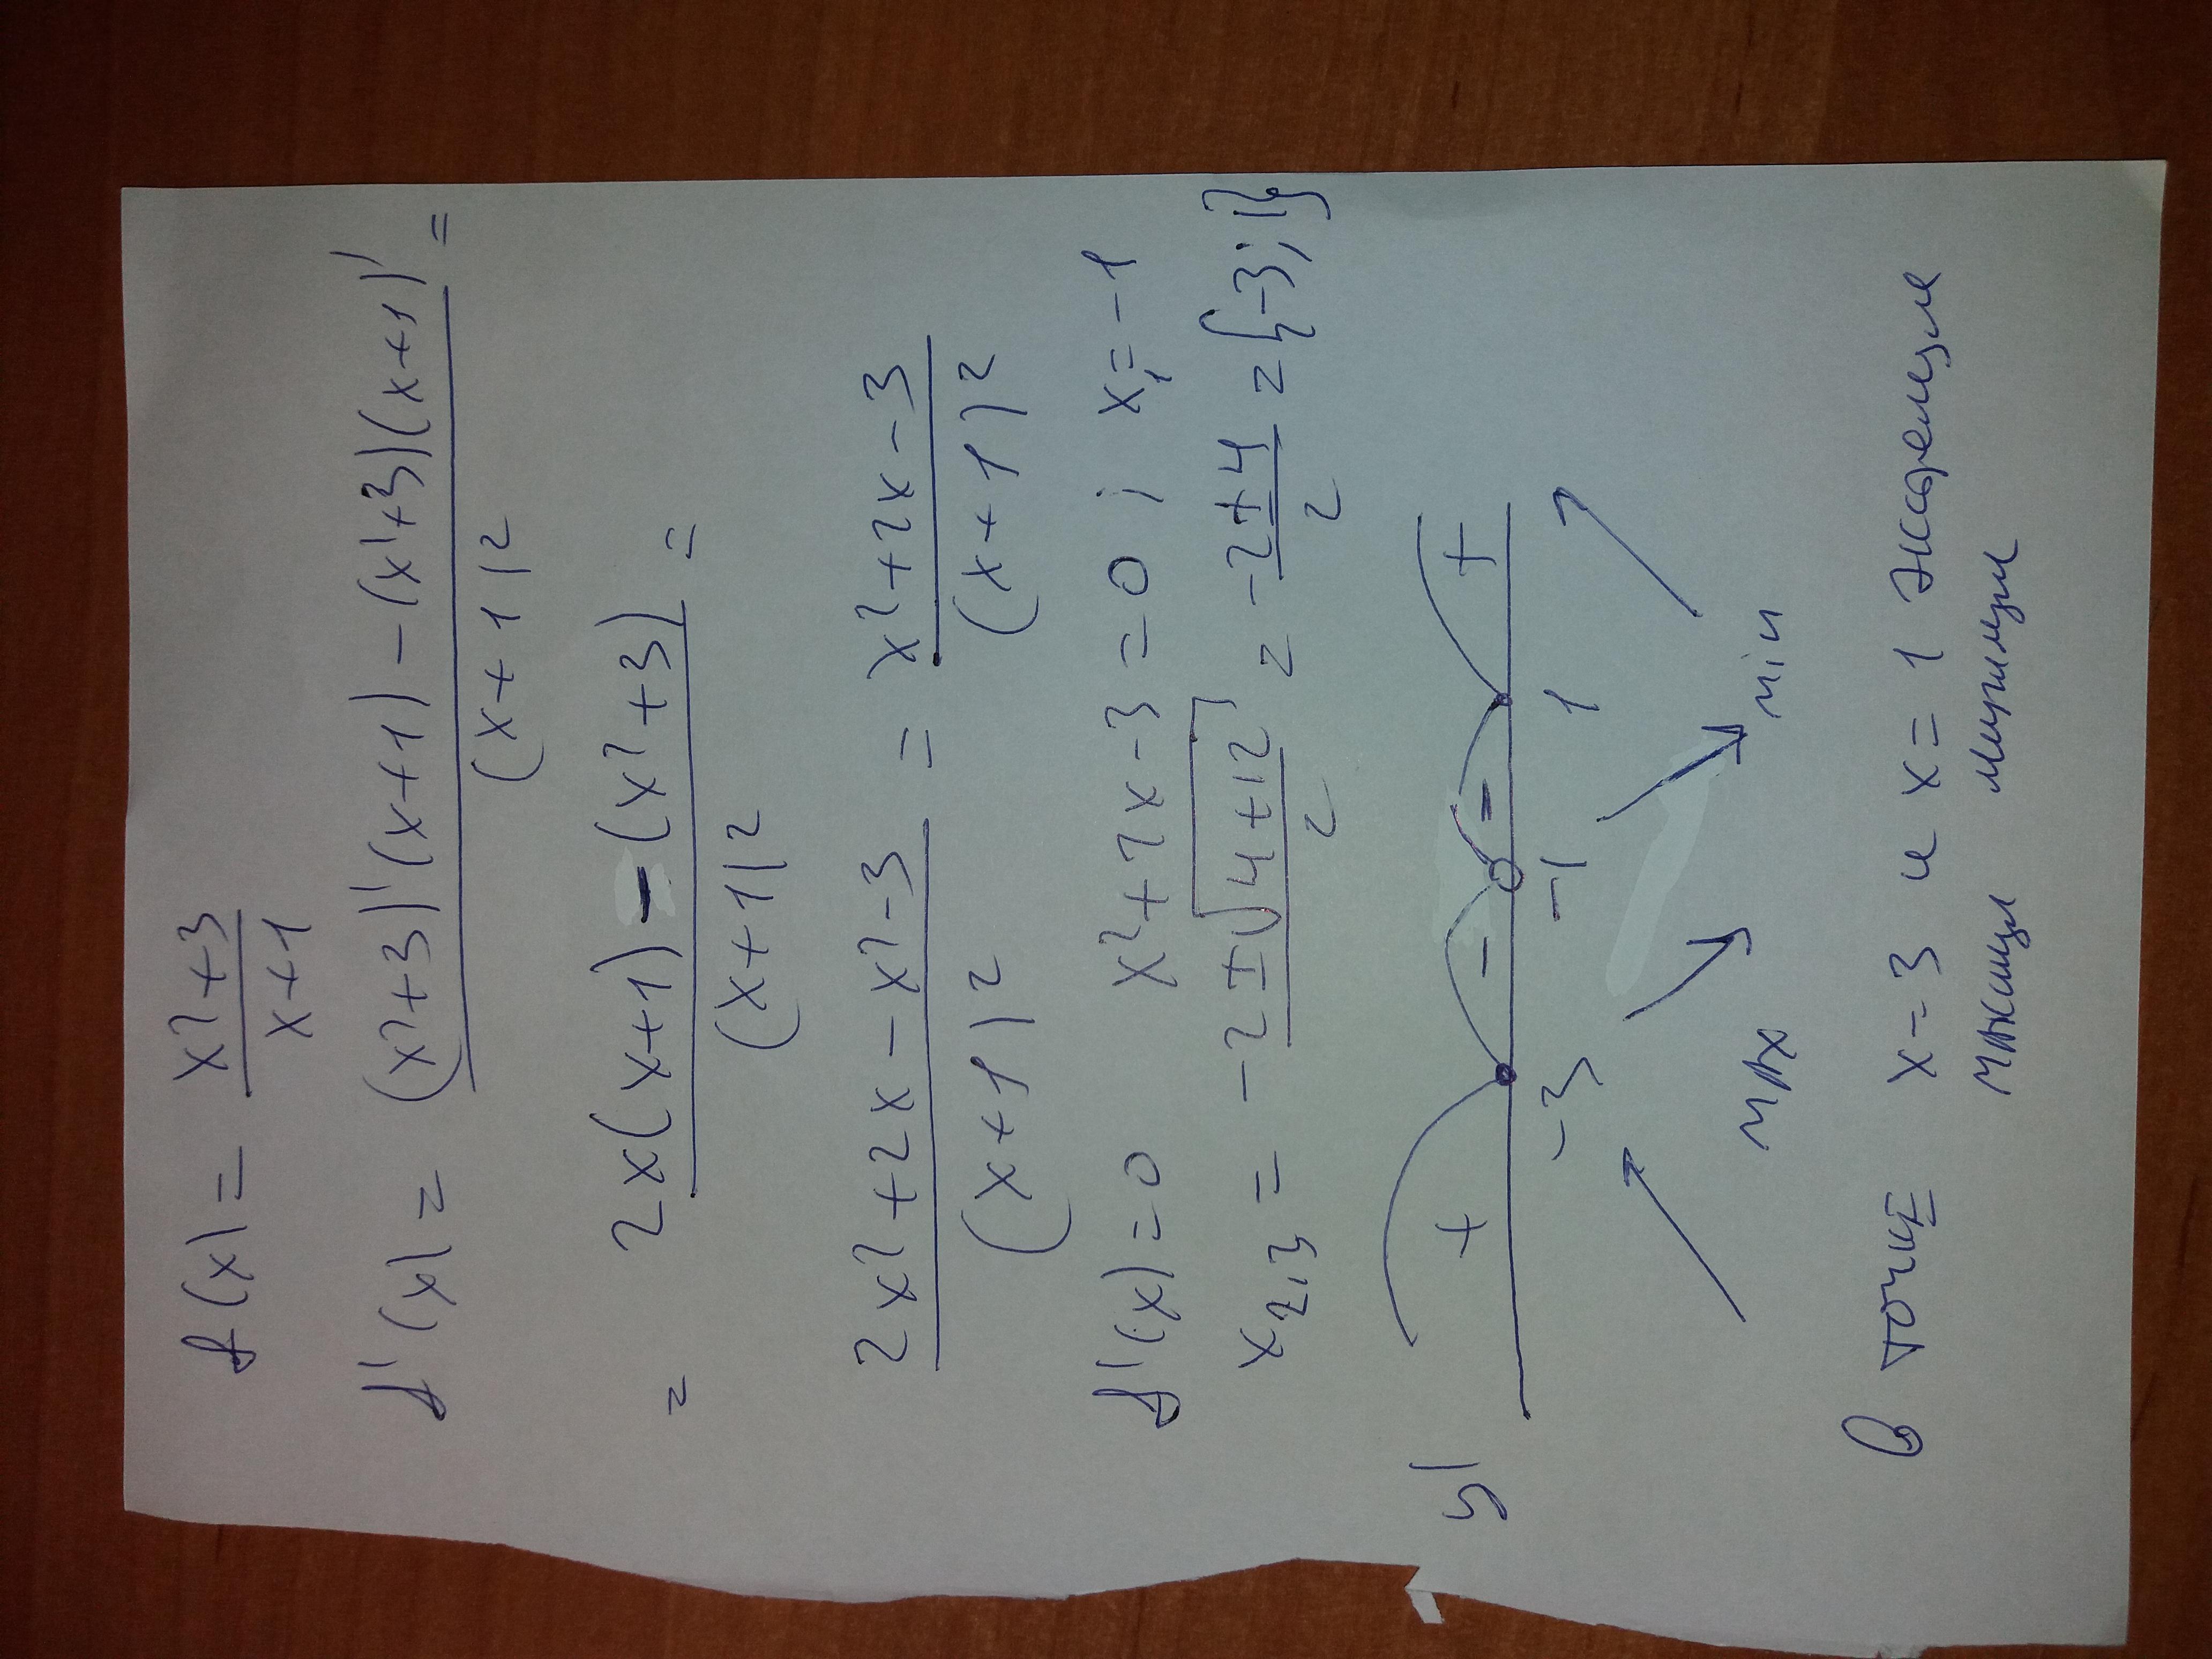 f(x) = (x²+3)/(x+1)
f'(x) = ((x²+3)'(x+1) - (x²+3)(x+1)')/(x+1)² =
= (2x(x+1) - (x²+3))/(x+1)² =
(2x²+2x-x²-3)/(x+1)² = (x²+2x-3)/(x+1)²
f'(x)=0 x²+2x-3=0 ; x₁=-1
x₂,₃ = (-2±√(4+12))/2 = (-2±4)/2 = {-3; 1}
y' + - - +
-3 -1 1
max min
В точке x=-3 и x=1 экстремум
максимум минимум